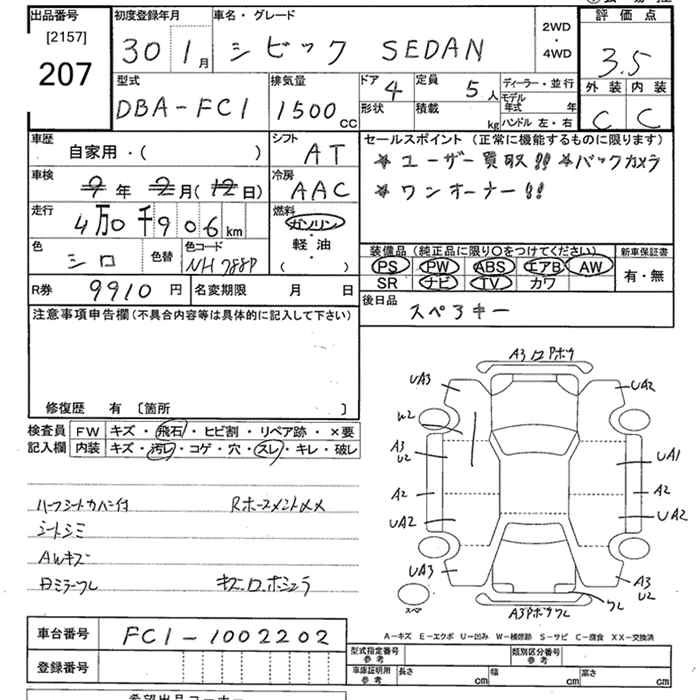 出品番号 初度登録年月 車名・グレード 評価点
[2157] 2WD
207 30 1月 シビック SEDAN ・ 3.5
4WD
型式 排気量 ドア 4 定員 5人 ディーラー・並行 外装 内装
モデル年式 年
DBA-FC1 1500cc 形状 積載 kg ハンドル 左・右 C C
車歴 シフト セールスポイント(正常に機能するものに限ります)
自家用・( ) AT ★ユーザー買取!! ★バックカメラ
車検 冷房 ★ワンオーナー!!
9年2月(12日) AAC
走行 燃料
4万0千906km ガソリン
色 色替 色コード ・ 装備品(純正品に限り○をつけてください) 新車保証書
シロ NH788P 軽油 PS PW ABS エアB AW 有・無
・( ) SR ナビ TV カワ
R券 9910円 名変期限 月 日 後日品
スペアキー
注意事項申告欄(不具合内容等は具体的に記入して下さい)
修復歴 有 〔箇所 〕
検査員 FW キズ・飛石・ヒビ割・リペア跡・×要
記入欄 内装 キズ・汚レ・コゲ・穴・スレ・キレ・破レ
A3 ロ Pホウ
UA3 UA2
W2
A3 U2 UA1
A2 A2
UA2 UA2
UA3 A3 U2
スペ A3Pホウワレ ワレ
ハーフシートカバー付
シートシミ
AWキズ
車台番号 FC1-1002202
A-キズ E-エクボ U-凹み W-補修跡 S-サビ C-腐食 XX-交換済
登録番号 型式指定番号 参考 類別区分番号 参考
車庫証明用 参考 長さ cm 幅 cm 高さ cm
希望出品コーナー